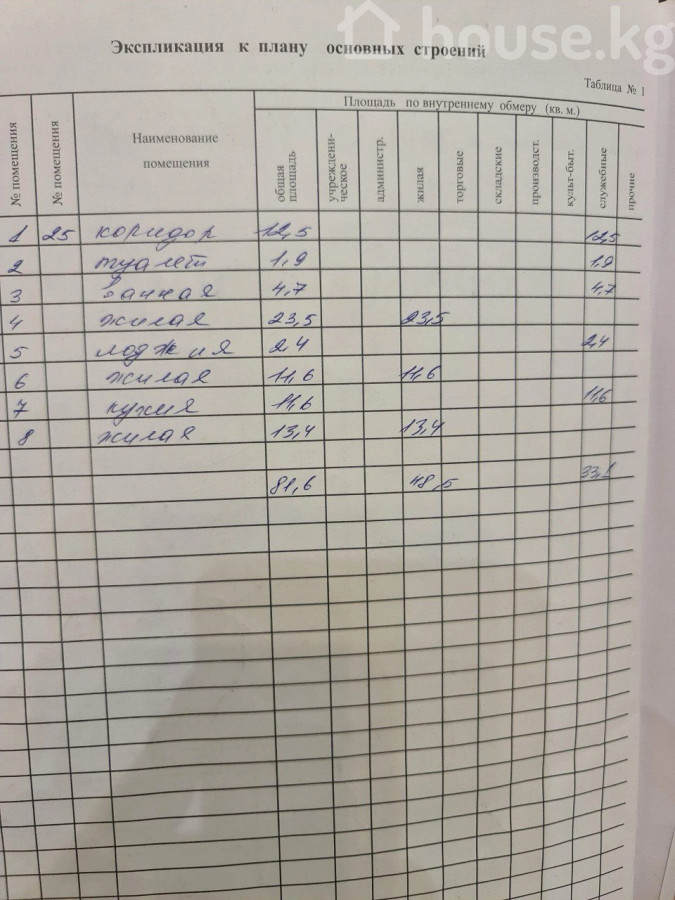 house.kg
Экспликация к плану основных строений
Таблица № 1
Площадь по внутреннему обмеру (кв. м.)
№ помещения
№ помещения
Наименование
помещения
общая
площадь
учреждени-
ческое
администр.
жилая
торговые
складские
производст.
культ-быт.
служебные
прочие
1 25 коридор 12,5 12,5
2 туалет 1,9 1,9
3 Ванная 4,7 4,7
4 жилая 23,5 23,5
5 лоджия 2 4 2,4
6 жилая 11,6 11,6
7 кухня 11,6 11,6
8 жилая 13,4 13,4
81,6 48,5 33,1